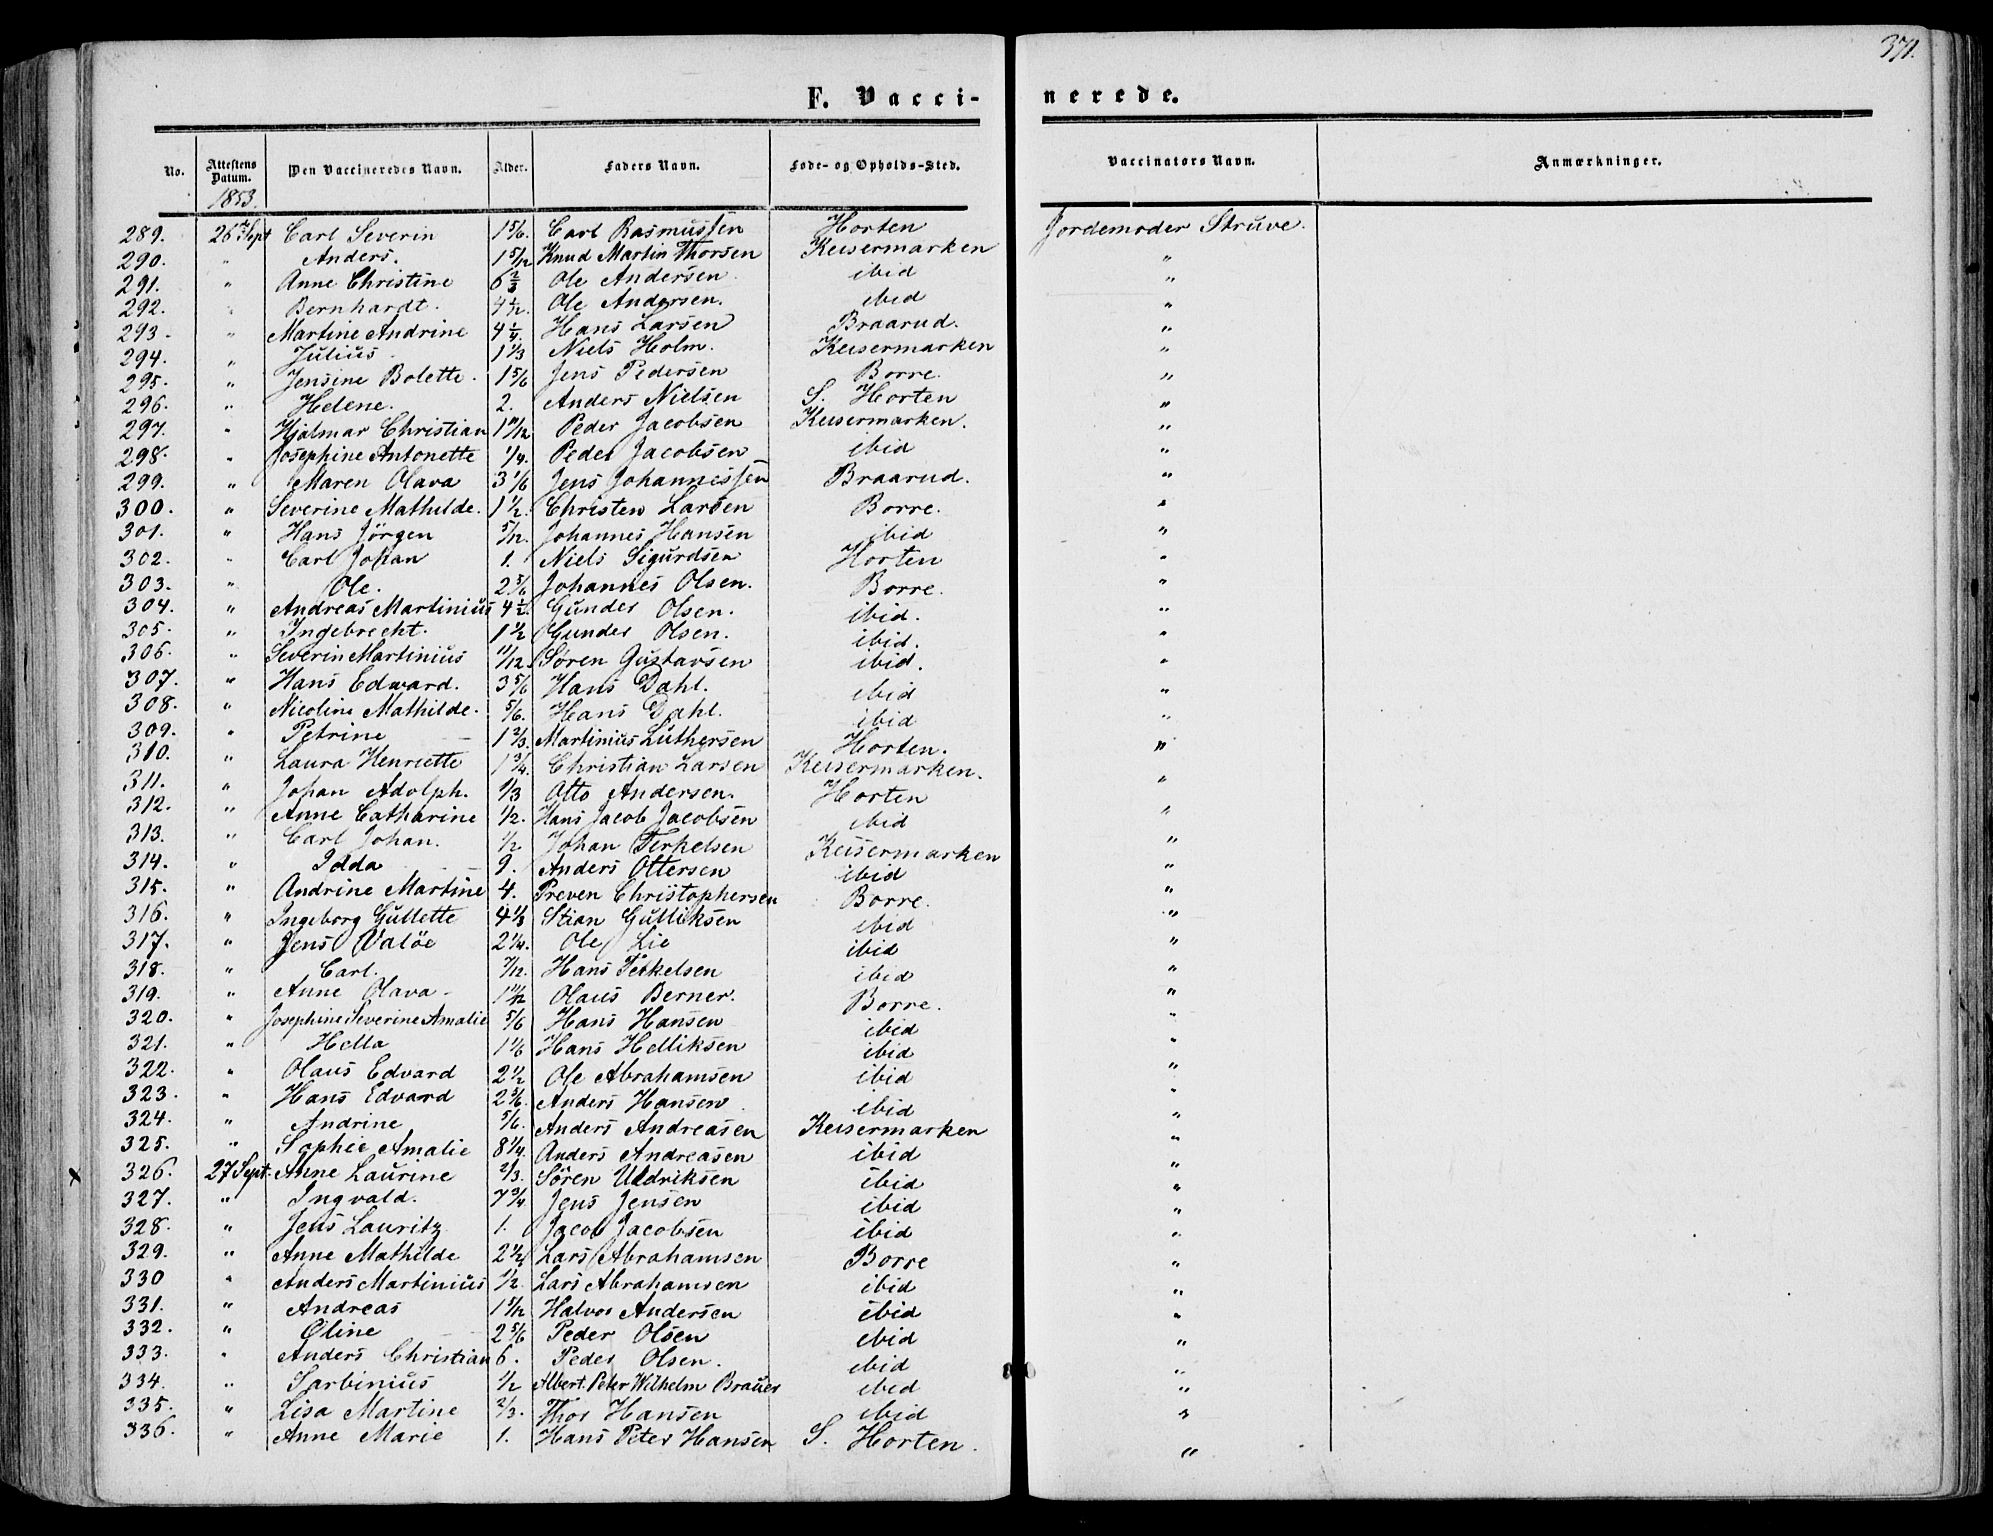 371.
F. Vaccinerede.
No. | Attestens Datum. | Den Vaccineredes Navn. | Alder. | Faders Navn. | Føde- og Opholds-Sted. | Vaccinators Navn. | Anmærkninger.
1853.
289. 26 Sept Carl Severin 1 5/6. Carl Rasmussen Horten Jordemoder Struve.
290. " Anders. 1 5/12 Knud Martin Thorsen Keisermarken "
291. " Anne Christine 6 2/3 Ole Andersen ibid "
292. " Bernhardt. 4 1/2. Ole Andersen. ibid "
293. " Martine Andrine 4 1/4. Hans Larsen Braarud. "
294. " Julius 1 1/3 Niels Holm. Keisermarken "
295. " Jensine Bolette. 1 5/6 Jens Pedersen Borre. "
296. " Helene. 2. Anders Nielsen S. Horten "
297. " Hjalmar Christian 1 11/12 Peder Jacobsen Keisermarken. "
298. " Josephine Antonette 1/4. Peder Jacobsen ibid "
299. " Maren Olava 3 1/6 Jens Johannessen Braarud. "
300. " Severine Mathilde. 1 1/2. Christen Larsen Borre. "
301. " Hans Jörgen 5/12. Johannes Hansen ibid "
302. " Carl Johan 1. Niels Sigurdsen Horten "
303. " Ole. 2 5/6 Johannes Olsen. Borre. "
304. " Andreas Martinius 4 1/2. Gunder Olsen. ibid. "
305. " Ingebrecht. 1 1/2 Gunder Olsen. ibid. "
306. " Severin Martinius 11/12. Søren Gustavsen ibid. "
307. " Hans Edward. 3 5/6 Hans Dahl. ibid "
308. " Nicoline Mathilde. 5/6. Hans Dahl. ibid "
309. " Petrine 1 2/3. Martinius Luthersen Horten. "
310. " Laura Henriette 1 3/4. Christian Larsen Keisermarken. "
311. " Johan Adolph. 1/3 Otto Andersen. Horten "
312. " Anne Catharine 1/2. Hans Jacob Jacobsen ibid "
313. " Carl Johan. 1/2 Johan Terkelsen Keisermarken "
314. " Idda 9. Anders Ottersen ibid "
315. " Andrine Martine 4. Preven Christophersen Borre. "
316. " Ingeborg Gullette 4 1/3 Stian Gulliksen ibid "
317. " Jens Valöe 2 1/4. Ole Lie ibid "
318. " Carl. 7/12. Hans Terkelsen ibid "
319. " Anne Olava 1 11/12 Olaus Berner. Borre. "
320. " Josephine Severine Amalie 5/6 Hans Hansen ibid "
321. " Hella 1 1/6 Hans Helliksen ibid "
322. " Olaus Edvard 2 1/2 Ole Abrahamsen ibid "
323. " Hans Edvard 2 5/6. Anders Hansen ibid "
324. " Andrine 5/6. Anders Andreasen Keisermarken "
325. " Sophie Amalie 8 1/4. Anders Andreasen ibid "
x 326. 27 Sept. Anne Laurine 2/3. Sören Uldriksen ibid "
327. " Ingvald. 7 3/4 Jens Jensen ibid "
328. " Jens Lauritz 1. Jacob Jacobsen ibid "
329. " Anne Mathilde 2 1/2 Lars Abrahamsen Borre "
330 " Anders Martinius 1/2. Lars Abrahamsen ibid "
331. " Andreas 1 5/12 Halvor Andersen ibid "
332. " Oline 2 5/6 Peder Olsen ibid "
333. " Anders Christian 6. Peder Olsen. ibid "
334. " Sarbinius 1/2 Albert Peter Wilhelm Brauer ibid "
335. " Lisa Martine 2/3. Thor Hansen ibid "
336. " Anne Marie 1. Hans Peter Hansen S. Horten. "